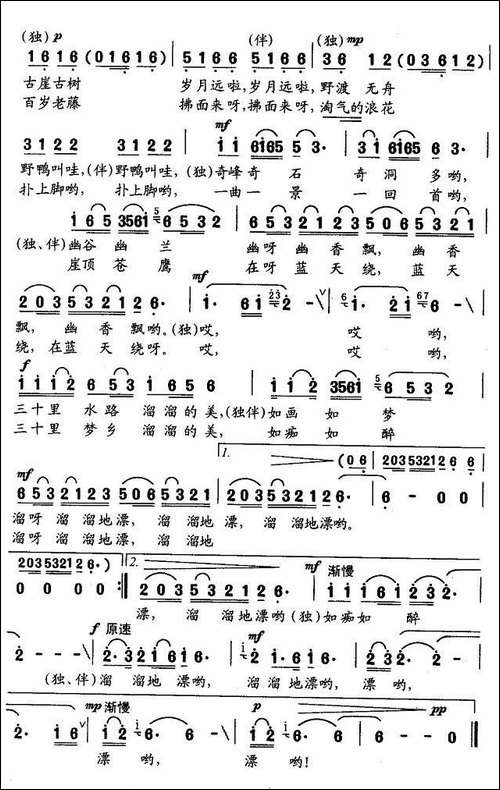 (独) p (伴) (独) mp
1616(01616) 5166 5166 36 12(03612)
古崖古树 岁月远啦,岁月远啦, 野渡 无舟
百岁老藤 拂面来呀,拂面来呀, 淘气的浪花
mf
3122 3122 112 6165 53· 112 6165 63·
野鸭叫哇,(伴)野鸭叫哇,(独)奇峰奇 石 奇 洞 多哟,
扑上脚哟, 扑上脚哟, 一曲一 景 一 回 首哟,
165 3561 6532 6532123 5065321
(独、伴)幽谷 幽 兰 幽呀 幽 香 飘, 幽 香
崖顶 苍 鹰 在呀 蓝 天 绕, 蓝 天
mf
2035321 26· i· 6i 2 - i· 2i 6 -
飘, 幽 香 飘哟。(独)哎, 哎 哟,
绕,在蓝 天 绕呀。 哎, 哎 哟,
f
1112 653 1656 112 3561 6532
三十里 水路 溜溜的美,(独伴)如画 如 梦
三十里 梦乡 溜溜的美, 如痴 如 醉
1. (06 203532126 6
mf
6532123 5065321 203532126· 6 - 00
溜呀 溜 溜地漂, 溜 溜地 漂, 溜 溜地漂哟。
溜呀 溜 溜地漂, 溜 溜地
203532126·) 2. mf 渐慢
0 0 0 0 203532126· 1116 1232·
漂, 溜 溜地漂哟(独)如痴如 醉
f 原速 mf
2 - - - 2·321616· 2 1·616· 232 2·
(独、伴)溜 溜地 漂哟, 溜溜地漂哟, 漂 哟,
mp 渐慢 p pp
2· 16 12 6· 6 - 12 6· 6 6 - 00
漂 哟, 漂 哟!